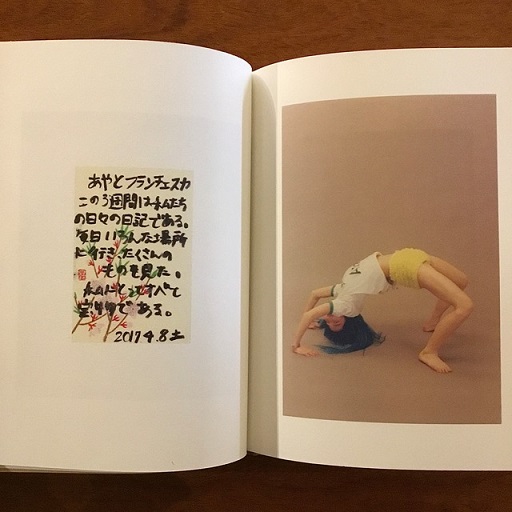 あやとフランチェスカ
この3週間は私たち
の日々の日記である。
毎日いろんな場所
に行き、たくさんの
ものを見た。
私にとってはすべて
宝物である。
2017.4.8土